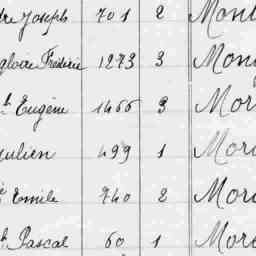 dre Joseph 701 2 Mont
gloire Frédéric 1273 3 Mon
h Eugène 1466 3 Mor
ulien 499 1 Mor
Emile 740 2 Mor
h Pascal 60 1 Mor